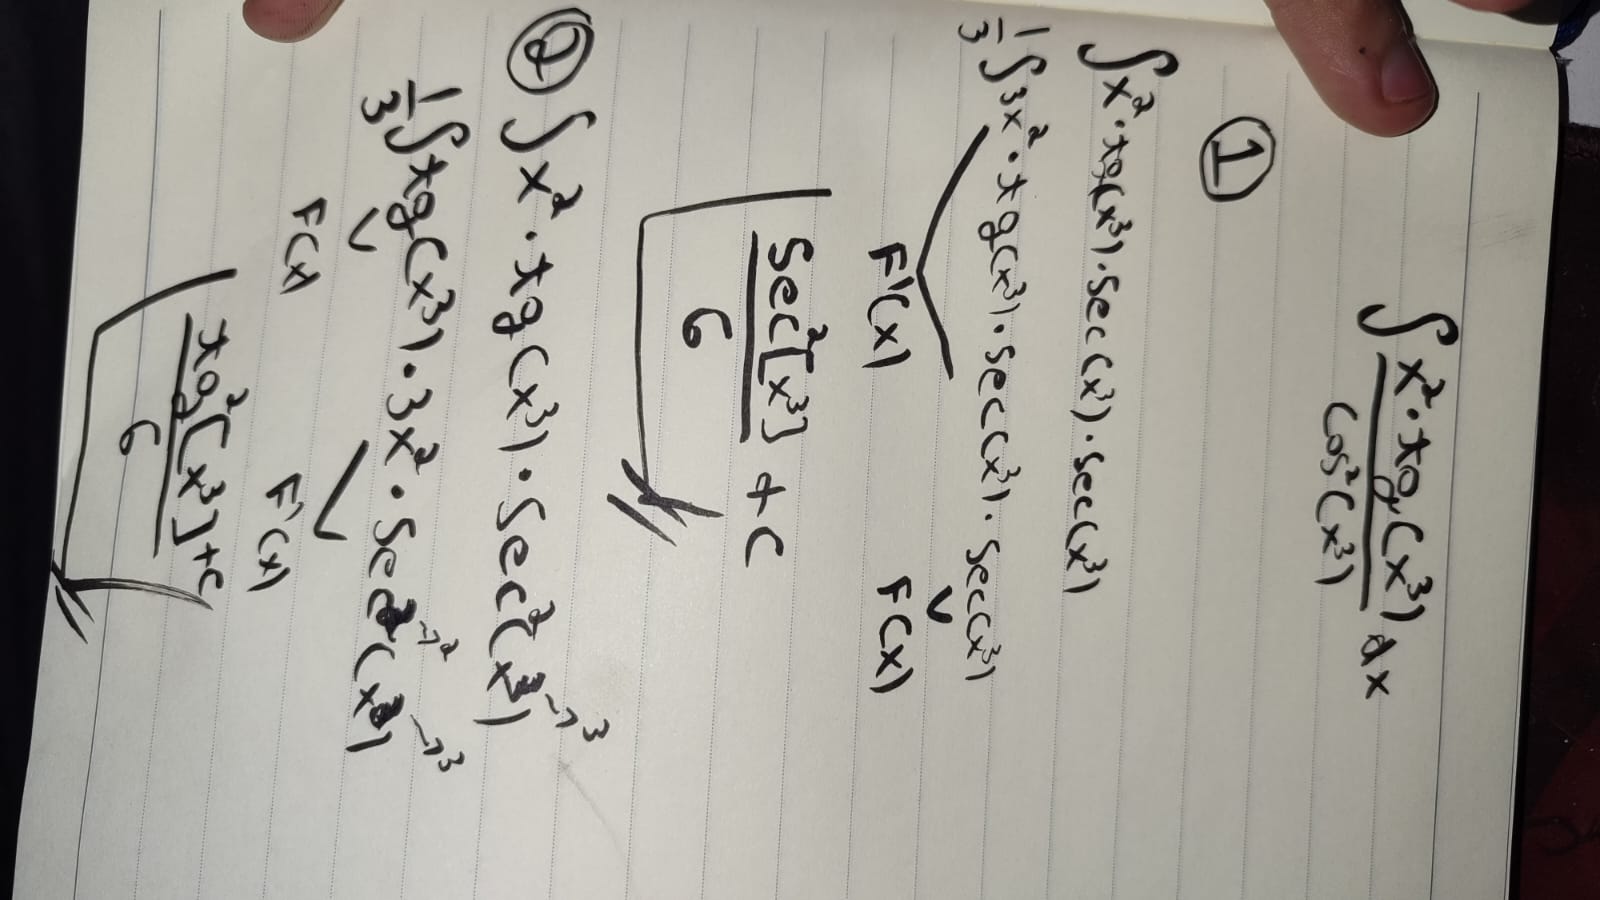 ∫ x²·tg(x³)/cos²(x³) dx
①
∫x²·tg(x³)·sec(x³)·sec(x³)
1/3 ∫3x²·tg(x³)·sec(x³)·sec(x³)
F'(x) F(x)
sec²[x³]/6 + c
② ∫x²·tg(x³)·sec²(x³) → 3
1/3 ∫tg(x³)·3x²·sec²(x³) → 2 → 3
F(x) F'(x)
tg²[x³]/6 + c